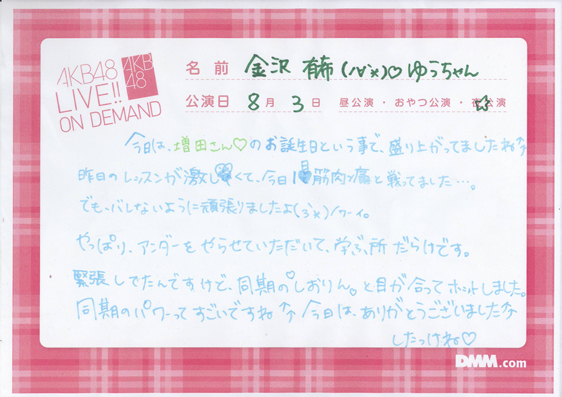 AKB48
LIVE!!
ON DEMAND
AKB
48
名前 金沢 有希 (ﾉ∀`×)♡ ゆうちゃん
公演日 8月 3日 昼公演・おやつ公演・☆公演
今日は、増田さん♡のお誕生日という事で、盛り上がってましたね↑
昨日のレッスンが激しくて、今日1日筋肉痛と戦ってました…。
でも、バレないように頑張りましたよ(´3`×)ノワーイ。
やっぱり、アンダーをやらせていただいて、学ぶ所だらけです。
緊張してたんですけど、同期のしおりん。と目が合ってホッとしました。
同期のパワーってすごいですね↑今日は、ありがとうございました↑
したっけね♡
DMM.com